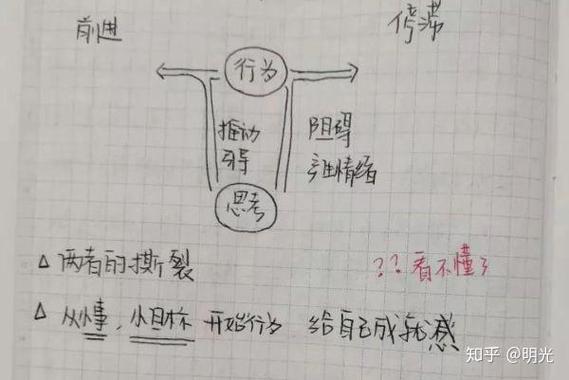 前进 停滞
行为
推动 阻碍
引导 产生情绪
思考
△ 两者的撕裂 ?? 看不懂了
△ 从小事，小目标 开始行为 给自己成就感
知乎 @明光